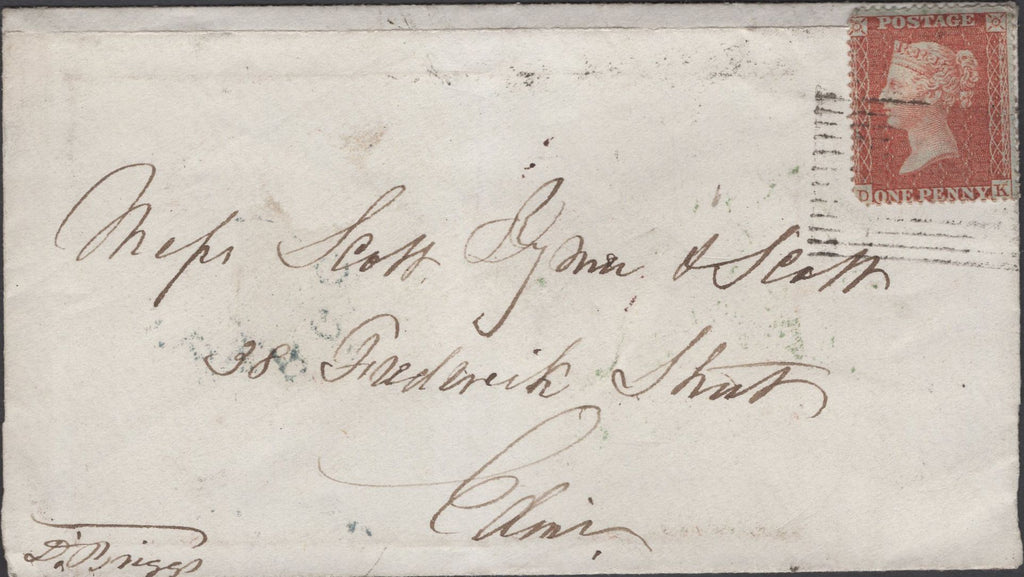 POSTAGE
D ONE PENNY K
Messrs Scott Rymer & Scott
38 Frederick Street
Edinr
D. Briggs